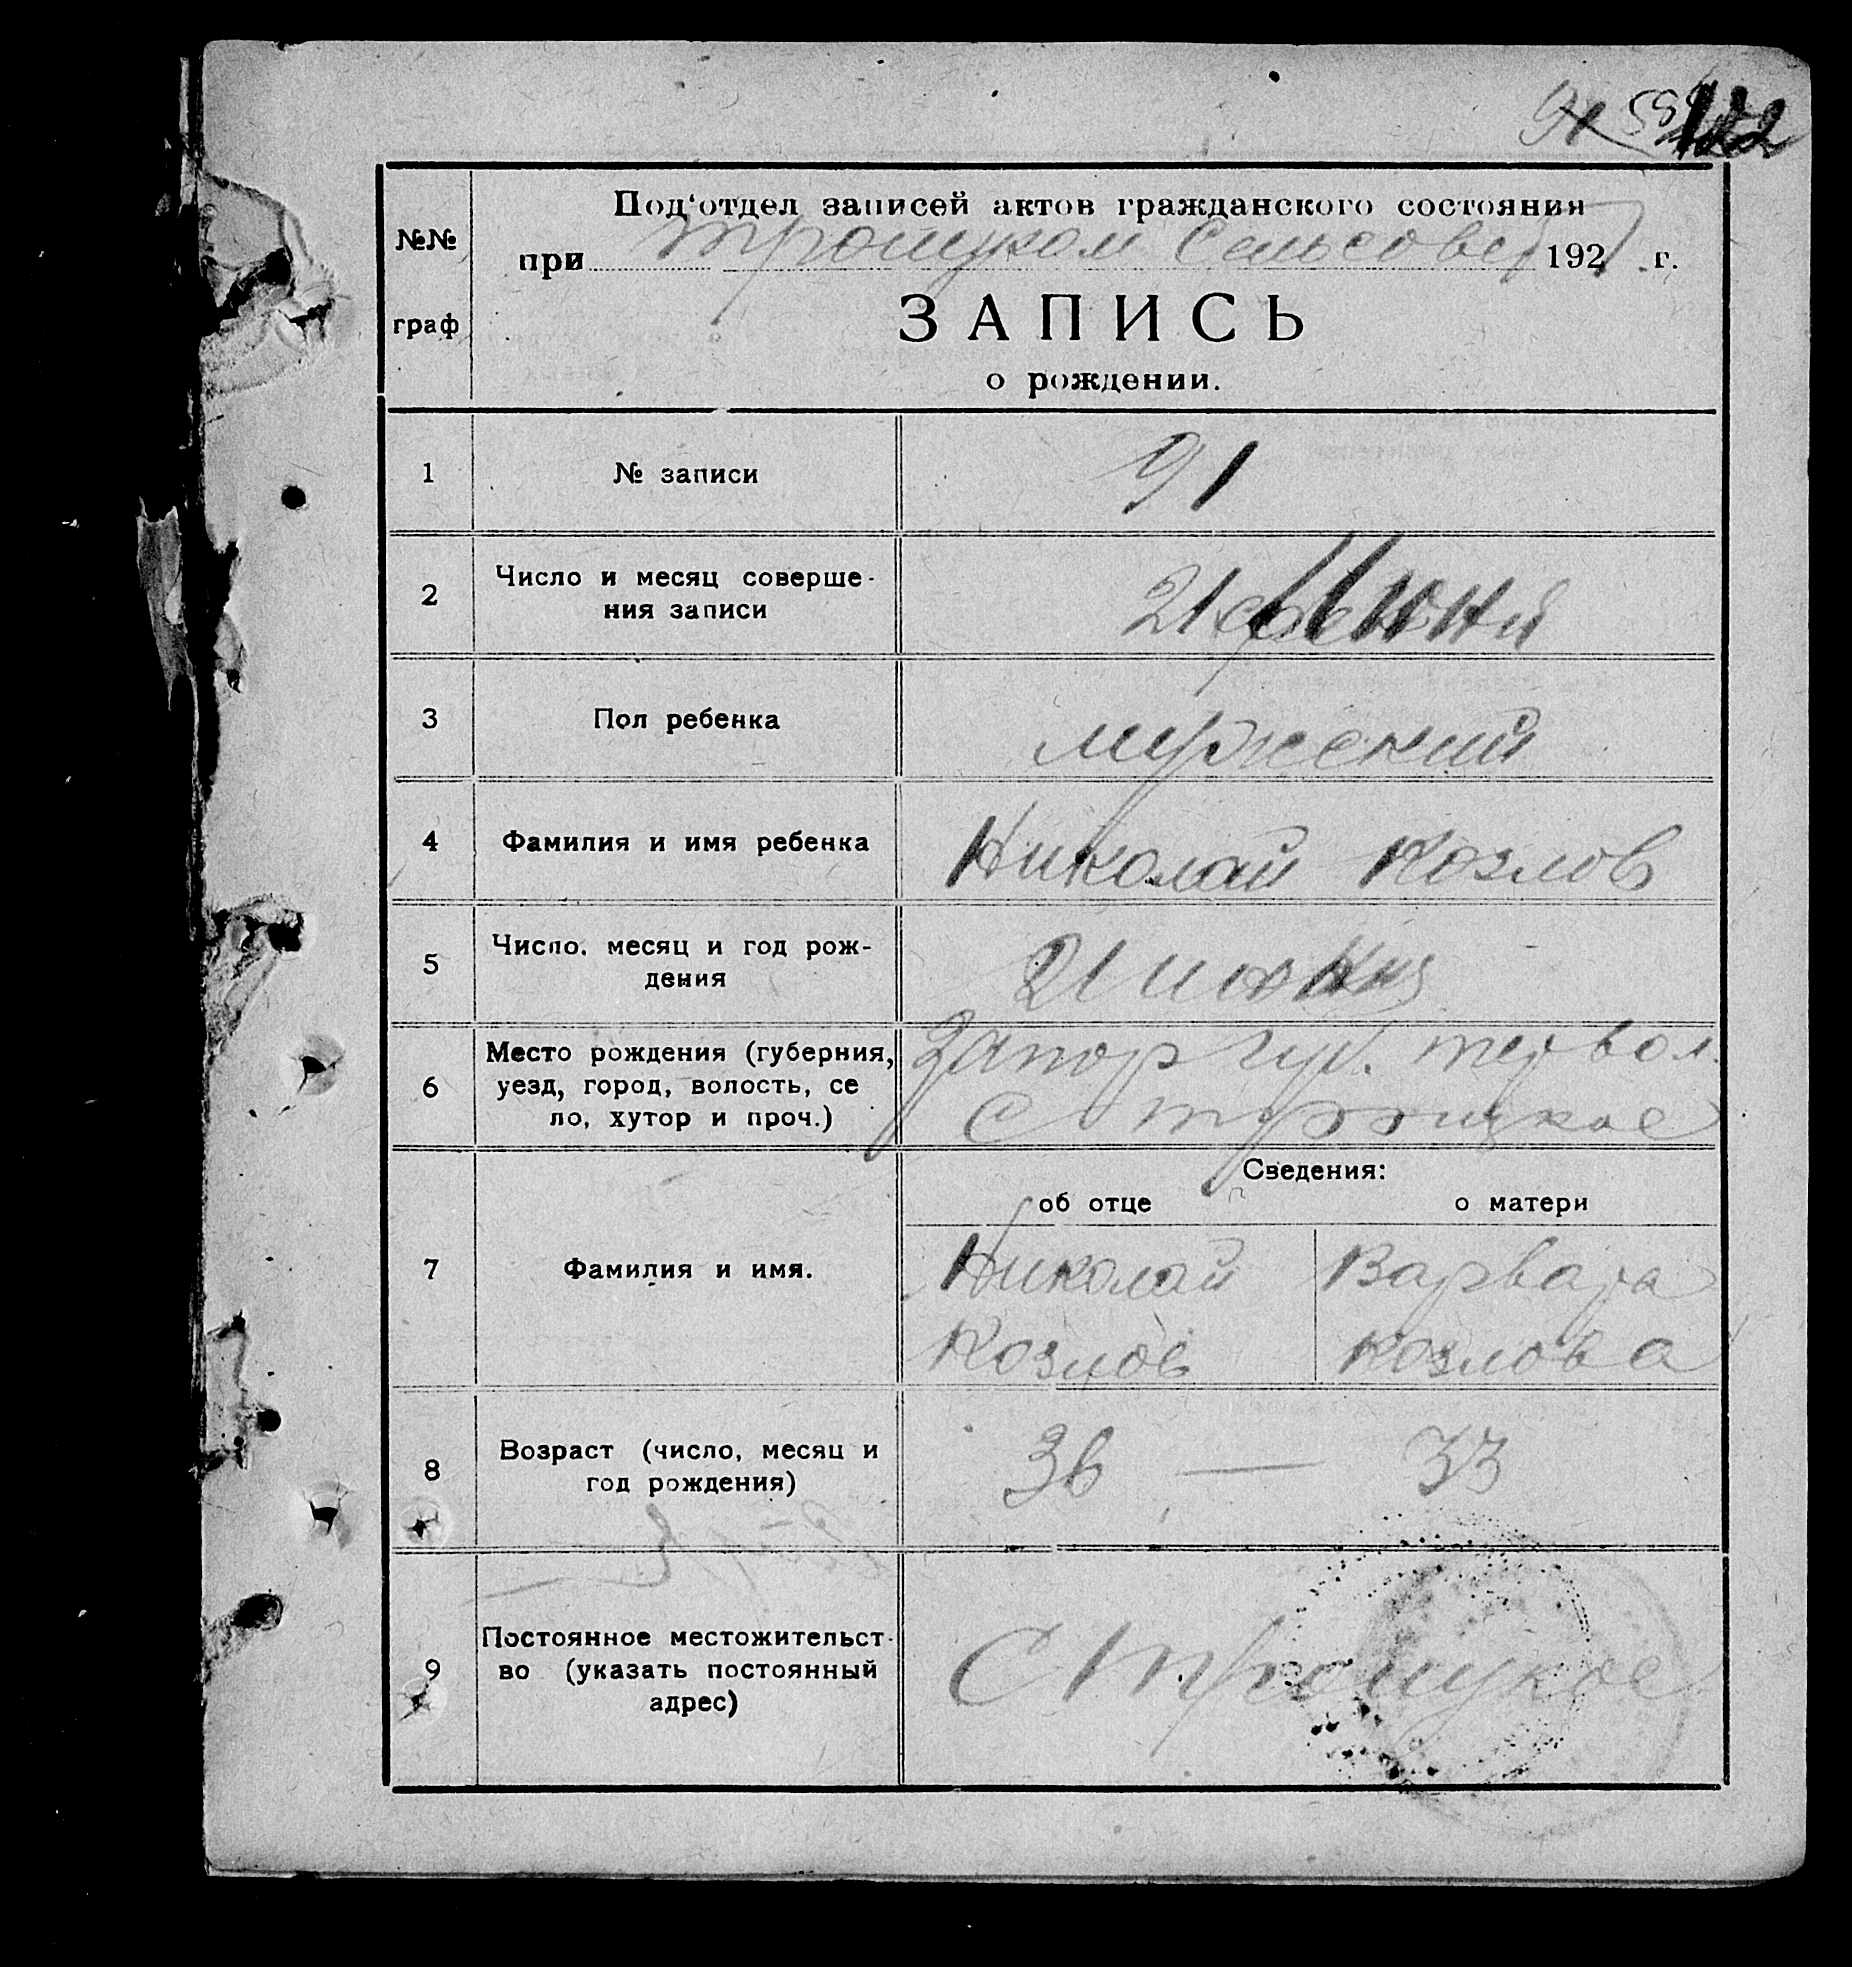 91
122
Под‘отдел записей актов гражданского состояния
№№
при Троицком Сельсовет 192 г.
граф
ЗАПИСЬ
о рождении.
1 № записи 91
2 Число и месяц соверше-
ния записи 21 Июня
3 Пол ребенка мужский
4 Фамилия и имя ребенка Николай Козлов
5 Число, месяц и год рож-
дения 21 июня
6 Место рождения (губерния,
уезд, город, волость, се
ло, хутор и проч.)
Запор губ. тер вол.
С троицкое
Сведения:
об отце о матери
7 Фамилия и имя.
Николай Варвара
Козлов Козлова
8 Возраст (число, месяц и
год рождения) 36 — 33
9 Постоянное местожительст-
во (указать постоянный
адрес)
С Троицкое